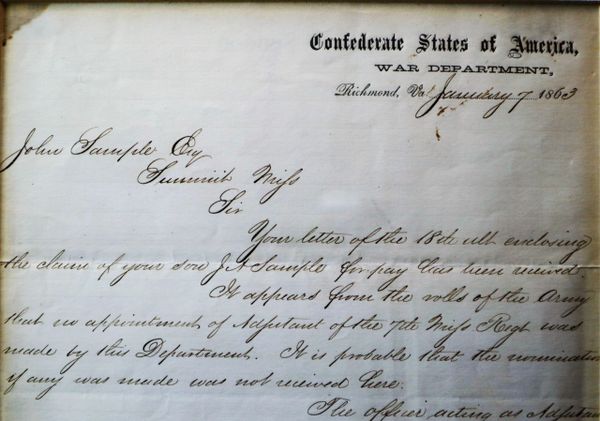 Confederate States of America,
WAR DEPARTMENT,
Richmond, Va. January 7 1863
John Sample Esq
Summit Miss
Sir
Your letter of the 18th ult enclosing
the claim of your son J A Sample for pay has been received.
It appears from the rolls of the Army
that no appointment of Adjutant of the 7th Miss Regt was
made by this Department. It is probable that the nomination
if any was made was not received here.
The officer acting as Adjutan